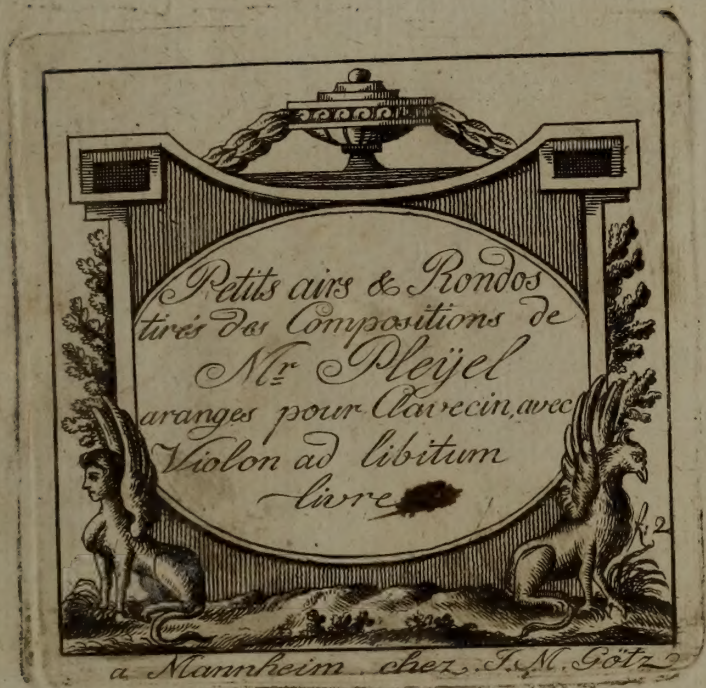 Petits airs & Rondos
tirés des Compositions de
Mr Pleÿel
aranges pour Clavecin, avec
Violon ad libitum
livre
f. 2
a Mannheim chez J. M. Götz